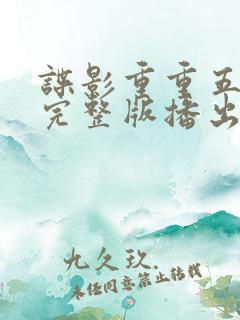 諜影重重五
完整版播出
九久玖.
未经同意禁止转载